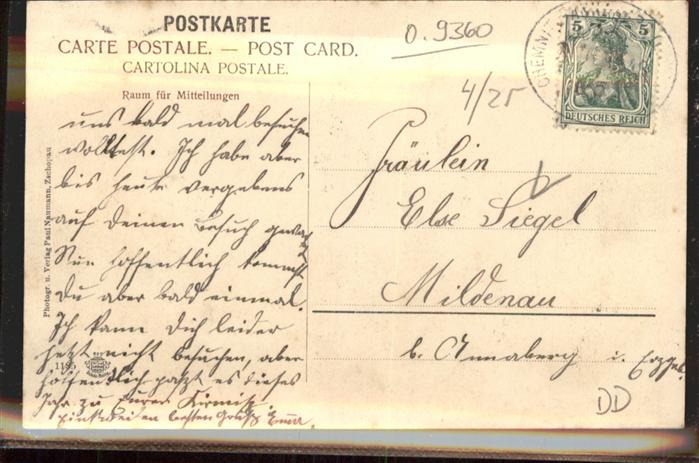 POSTKARTE
CARTE POSTALE. — POST CARD.
CARTOLINA POSTALE.
Raum für Mitteilungen
uns bald mal besuchen
wolltest. Ich habe aber
bis heute vergebens
auf deinen Besuch gewartet
Nun hoffentlich kommst
Du aber bald einmal.
Ich kann Dich leider
jetzt nicht besuchen, aber
hoffentlich paßt es dieses
Jahr zu eurer Kirmis.
Einstweilen besten Gruß Emma.
Photogr. u. Verlag Paul Naumann, Zschopau
1195
0.9360
4/25
CHEMNITZ
5 5
DEUTSCHES REICH
Fräulein
Else Siegel
Mildenau
b. Annaberg i. Erzgeb.
DD